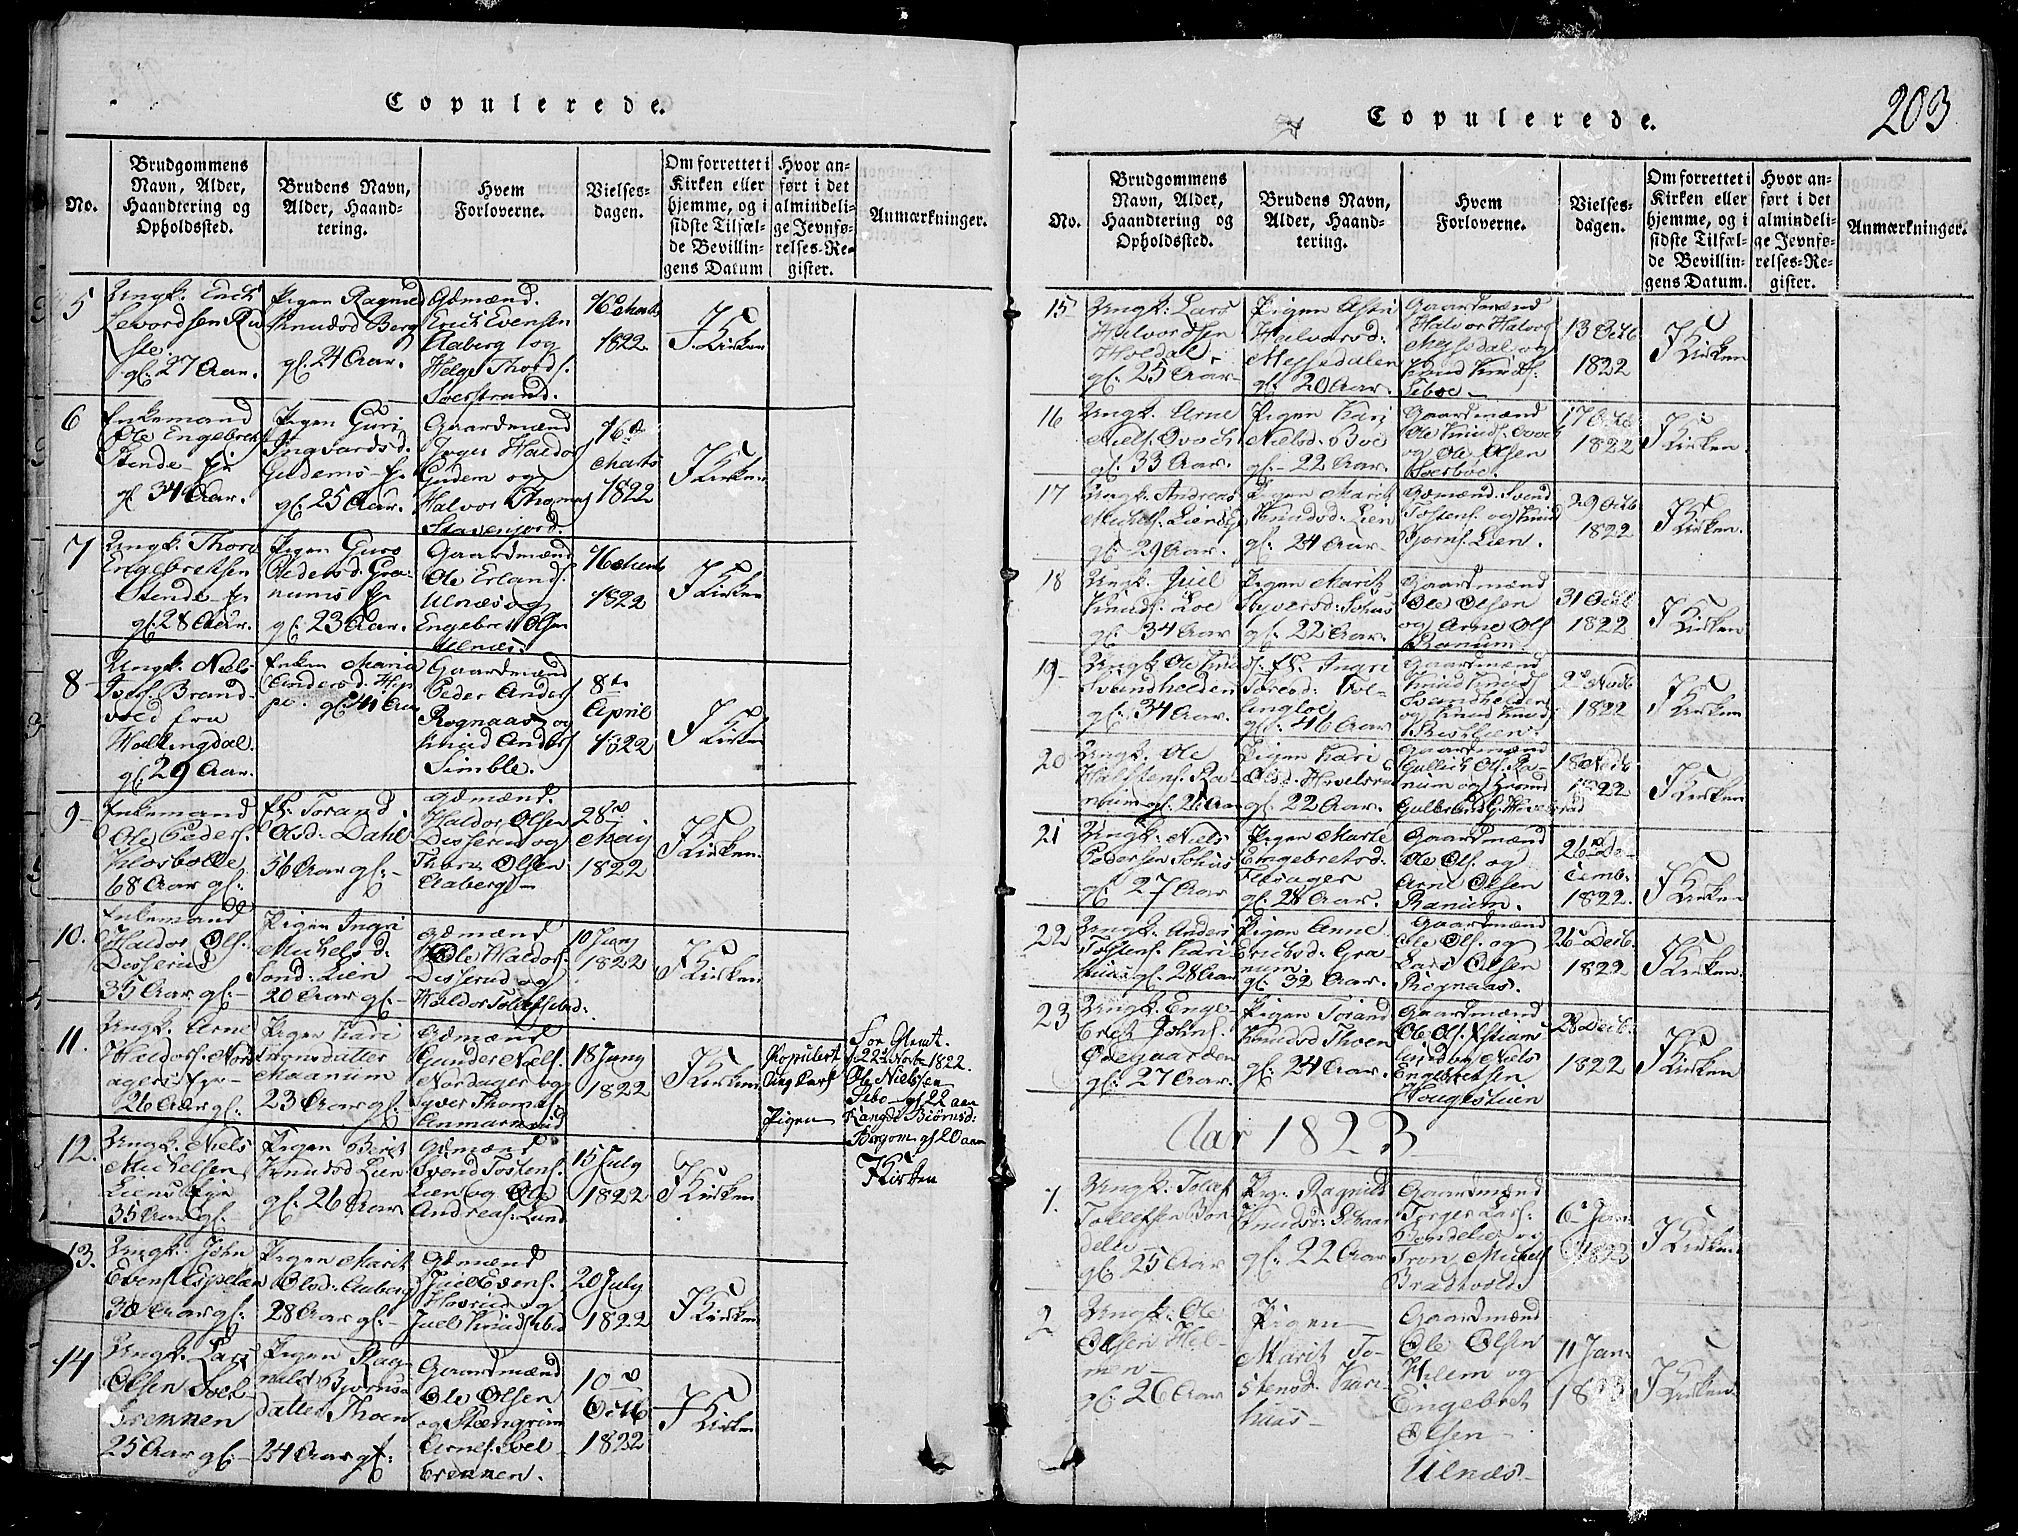 Copulerede.
No.
Brudgommens Navn, Alder, Haandtering og Opholdssted.
Brudens Navn, Alder, Haandtering.
Hvem Forloverne.
Vielsesdagen.
Om forrettet i Kirken eller hjemme, og i sidste Tilfælde Bevillingens Datum
Hvor anført i det almindelige Jevnførelses-Register.
Anmærkninger.
5
Ungk. Erich
Levordsen
gl. 27 Aar.
Pigen Ragnild
Knudsd Berg
gl. 24 Aar.
Gdmænd.
Erich Evensen
Aaberg og
Helge Thords.
16 Marts
1822
I Kirken
6
Enkemand
Ole Engebrets.
Stende
gl 34 Aar.
Pigen Guri
Ingvarsd.
gl. 25 Aar.
Gaardmænd
Haldor
og
Halvor Thomas
Stavenjord.
16de
Marts
1822
I Kirken
7
Ungk. Thore
Engebretsen
Stende
gl. 28 Aar.
Pigen Guro
gl. 23 Aar.
Gaardmænd
Ole Erlands.
Ulnæs og
Engebret Olsen
Ulnæs.
16 Marts
1822
I Kirken
8
Ungk. Niels
Brandvold fra
Hallingdal.
gl. 29 Aar.
Enken Maria
Andersd.
gl. 41 Aar
Gaardmænd
Peder Anders.
Rognaas og
Knud Anders.
Simble.
8de
April
1822
I Kirken
9
Enkemand
Ole Peders.
68 Aar gl.
Torand
Olsd. Dahl
56 Aar gl.
Gdmænd.
Haldor Olsen
Disserud og
Thore Olsen
Aaberg
28de
Maij
1822
I Kirken.
10.
Enkemand
Haldor Ols.
Disserud
35 Aar gl.
Pigen Ingri
Michelsd.
Lien
20 Aar gl.
Gdmænd
Ole Haldors.
Disserud og
Haldor
10 Juny
1822
I Kirken
11.
Ungk. Arne
Haldors. Nord
ager
26 Aar gl.
Pigen Kari
datter
Maanum
23 Aar gl.
Gdmænd
Gunder Niels.
Nordager og
Syver Thomas.
18 Juny
1822
I Kirken
Kopulert
Ung Carl
Pigen
For Glemt.
d. 22 Novbr 1822.
Ole Nielssen
Sebo gl 22 aar
Rangdi Biørnsd.
Borgom gl 20 aar
I Kirken
12.
Ungk. Niels
Michelsen
Liens Eje
35 Aar gl.
Pigen Berit
Knudsd Lien
gl. 26 Aar
Gdmænd
Svend Tostens.
Lien og Ole
Andreas. Lund
15 July
1822
I Kirken
13.
Ungk. John
Evens. Espeland
30 Aar gl.
Pigen Marit
Olsd. Aaberg
28 Aar gl.
Gdmænd
Juel Evens.
og
Juel Knuds.
20 July
1822
I Kirken
14
Ungk. Lars
Olsen Svel
brennen
25 Aar gl.
Pigen Rag
nild Bjorns
datter Thoen
24 Aar gl.
Gaardmænd
Ole Olsen
og Stengrim
Arnes. Svel
brennen.
10de
Octb
1822
I Kirken
203
Copulerede.
No.
Brudgommens Navn, Alder, Haandtering og Opholdssted.
Brudens Navn, Alder, Haandtering.
Hvem Forloverne.
Vielsesdagen.
Om forrettet i Kirken eller hjemme, og i sidste Tilfælde Bevillingens Datum.
Hvor anført i det almindelige Jevnførelses-Register.
Anmærkninger.
15
Ungk. Lars
Halvordsen
Holdal
gl. 25 Aar
Pigen Astri
Halvorsd.
Messedalen
gl. 20 Aar.
Gaardmænd
Halvor Halvors.
og
Knud Knuds.
13 Octb
1822
I Kirken
16
Ungk. Arne
Niels.
gl. 33 Aar.
Pigen Kari
Nielsd. Boe
gl. 22 Aar.
Gaardmænd
Ole Knuds.
og Ole Olsen
17 Octb
1822
I Kirken.
17
Ungk. Andreas
Michels. Liens Eje
gl. 29 Aar.
Pigen Marit
Knudsd. Lien
gl. 24 Aar
Gdmænd. Svend
Tostens. og Knud
Bjorns. Lien.
29 Octb
1822
I Kirken.
18
Ungk. Juel
Knuds. Loe
gl. 34 Aar
Pigen Marit
Syversd.
gl. 22 Aar.
Gaardmænd
Ole Olsen
og Arne Ols
Ranum.
31 Octb
1822
I Kirken
19
Ungk. Ole Knuds.
Svandhelden
gl. 34 Aar.
Ingri
Toresd.
gl. 46 Aar
Gaardmænd
Knud Knuds
og Knud Knuds
2de Novb
1822
I Kirken
20
Ungk. Ole
Halstens. Ra-
num gl. 26 Aar
Pigen Kari
Olsd.
gl. 22 Aar.
Gaardmænd
Gullich Ols. Ra-
num og
18 Novb.
1822
I Kirken
21
Ungk. Niels
Pedersen
gl. 27 Aar
Pigen Marte
Engebretsd.
gl. 28 Aar.
Gaardmænd
Ole Ols. og
Arne Olsen
Ranum.
26de De-
cemb.
1822.
I Kirken
22
Ungk. Anders
Tostens. Kari
huus gl. 28 Aar
Pigen Anne
Erichsd. Gra-
num.
gl. 32 Aar.
Gaardmænd
Ole Ols. og
Lars Olsen
Rognaas.
26 Decb.
1822
I Kirken.
23
Ungk. Enge-
bret Johns.
Ødegaarden
gl. 27 Aar.
Pigen Torand
Knudsd Thoen
gl. 24 Aar.
Gaardmænd
Ole Ols.
Niels
Engebretsen
28 Decb.
1822
I Kirken
Aar 1823
1.
Ungk. Tolef
Tollefsen Bon
delie
gl. 25 Aar
Pig. Ragnild
Knudsd.
gl. 22 Aar
Gaardmænd
Torger Lars.
Bondelie og
Tron Michels
Bradtvold
6 Jan.
1823
I Kirken.
2
Ungk. Ole
Olsen Hel-
men
gl. 26 Aar
Pigen
Marit To-
stensd. Kari-
huus
Gaardmænd
Ole Olsen
Helem og
Engebret
Olsen
Ulnæs
11 Jan.
1823
I Kirken.